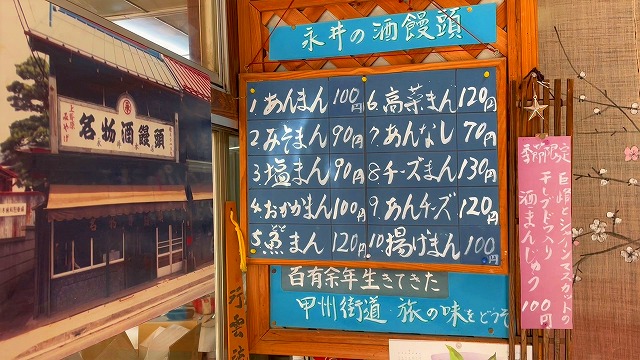 永井の酒饅頭
1. あんまん 100円
2. みそまん 90円
3. 塩まん 90円
4. おかかまん 100円
5. 鮭まん 120円
6. 高菜まん 120円
7. あんなし 70円
8. チーズまん 130円
9. あんチーズ 120円
10. 揚げまん 100円
百有余年生きてきた
甲州街道 旅の味をどうぞ
季節限定
巨峰とシャインマスカットの
干しブドウ入り
酒まんじゅう
100円
上野原
名物酒饅頭
行雲流